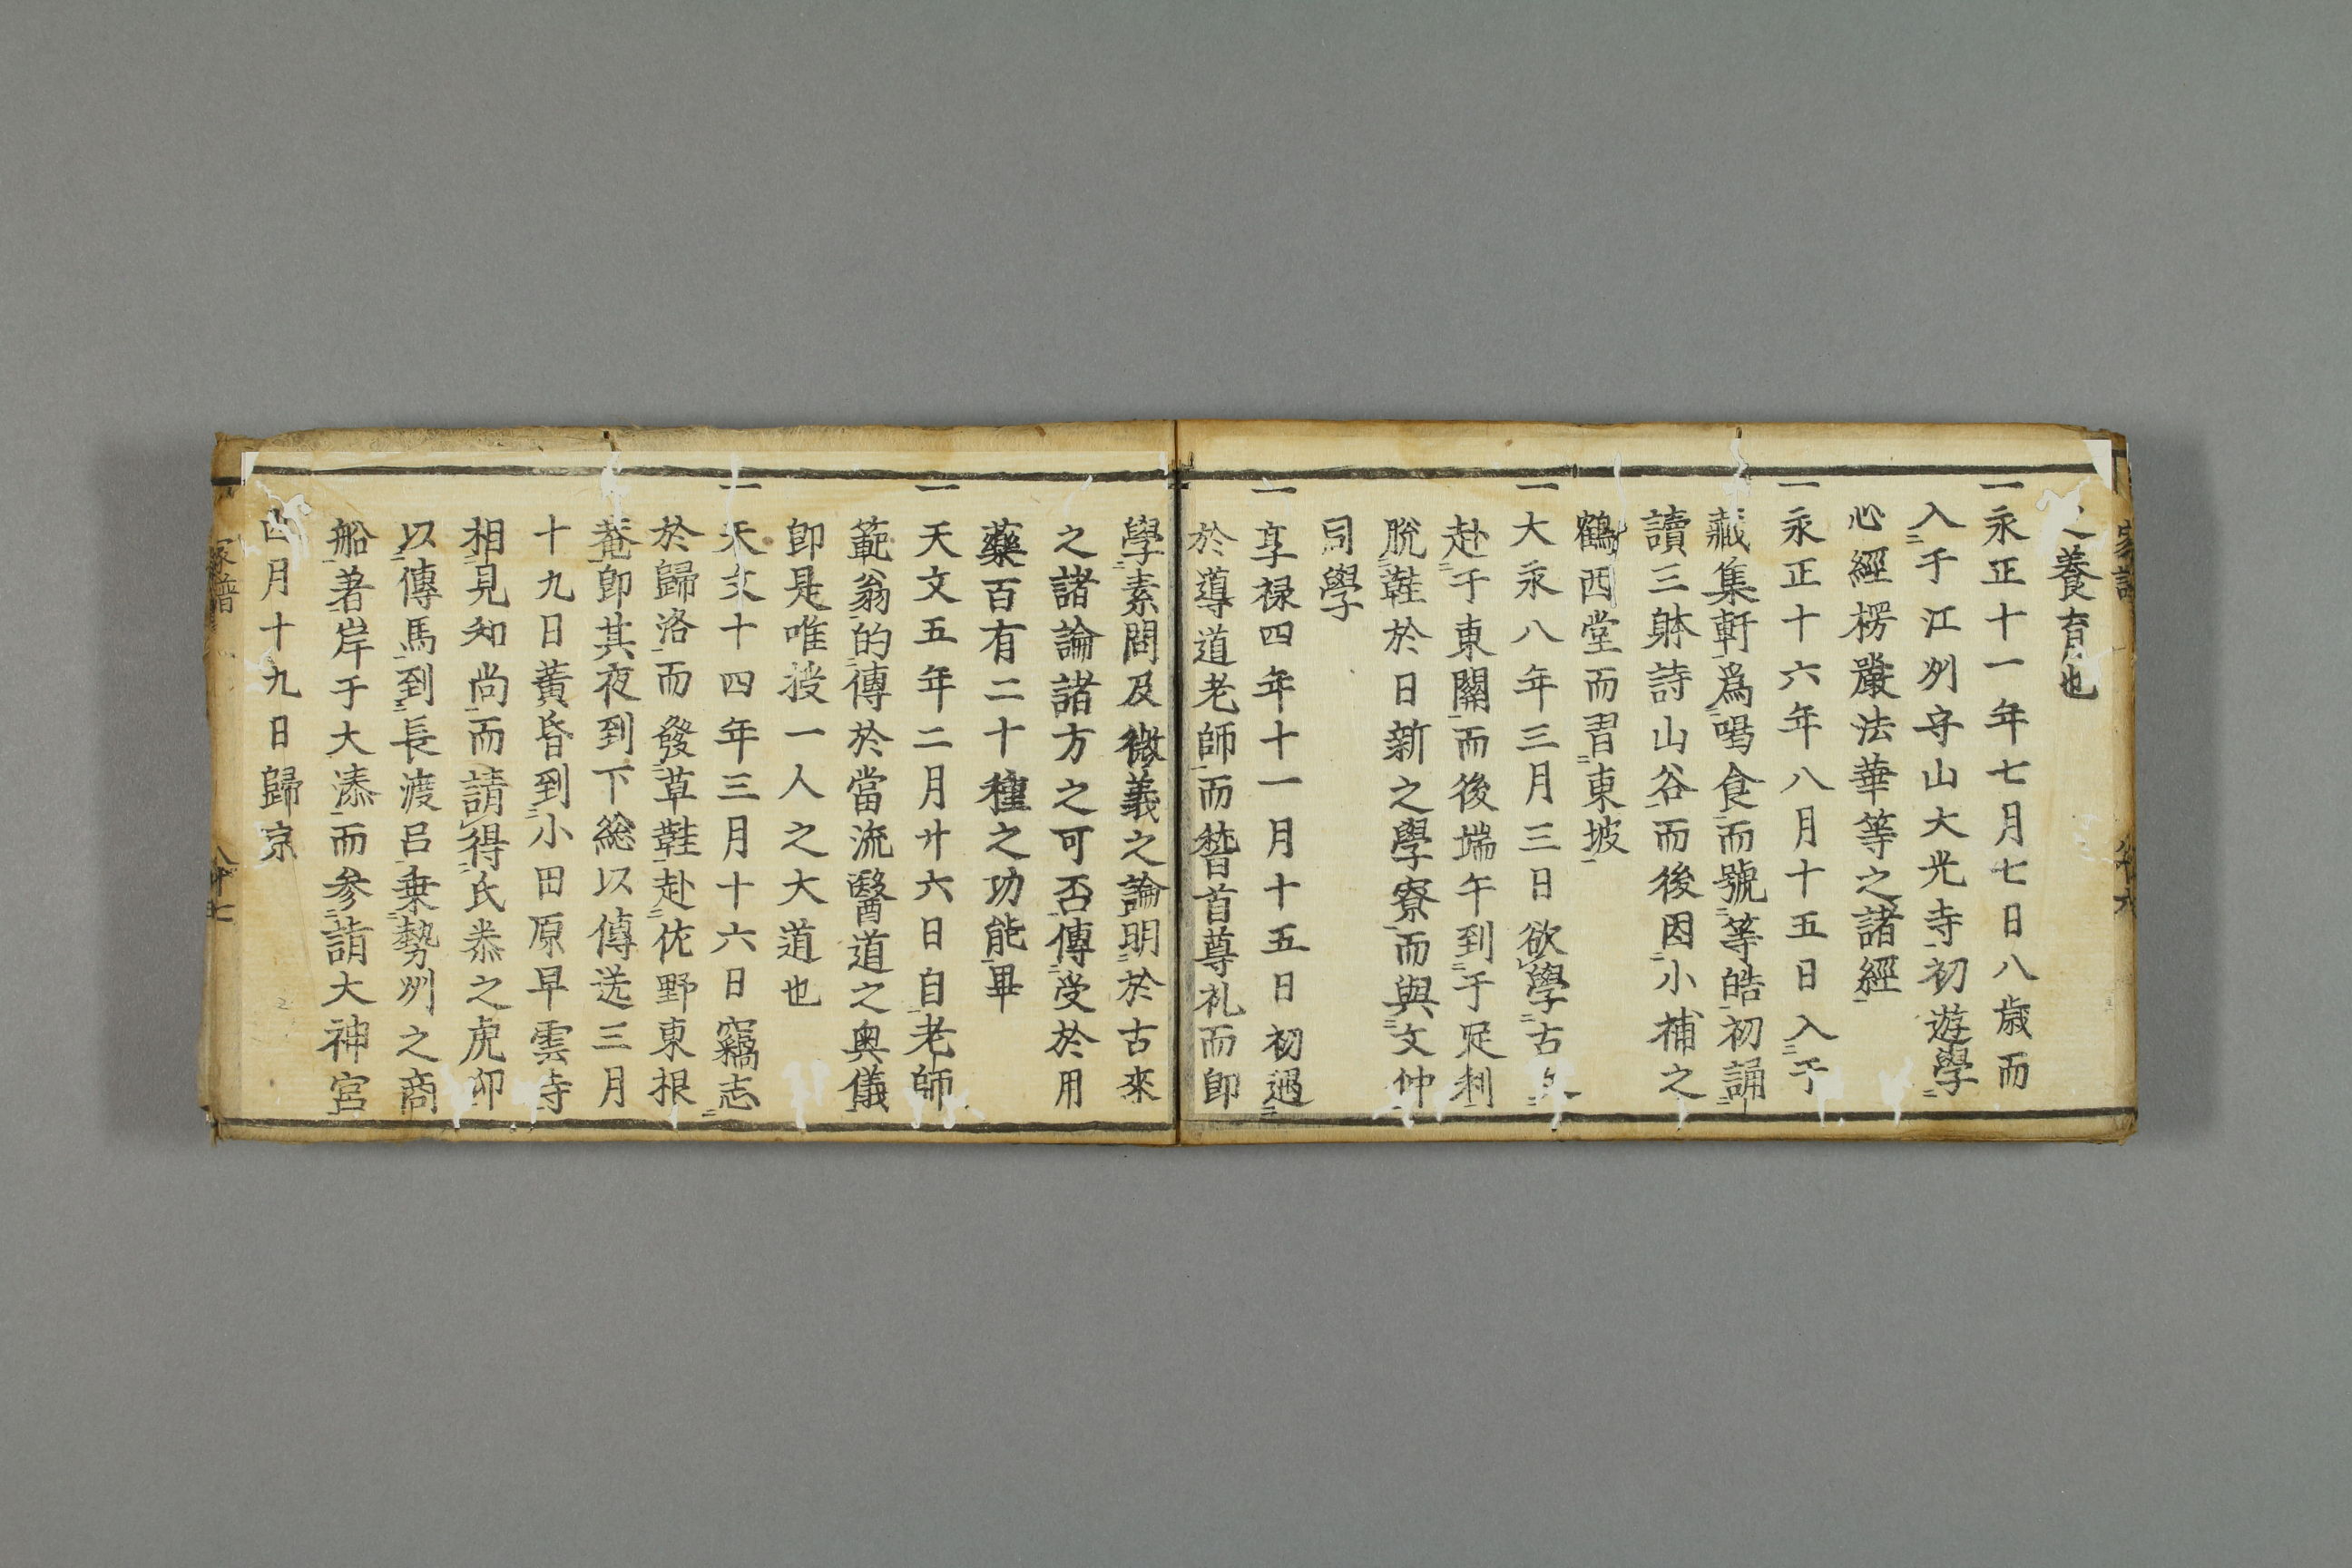 之養育也
一永正十一年七月七日八歳而
入于江州守山大光寺初遊學
心經楞嚴法華等之諸經
一永正十六年八月十五日入于
藏集軒爲喝食而號等皓初誦
讀三躰詩山谷而後因小補之
鶴西堂而習東坡
一大永八年三月三日欲學古
赴于東關而後端午到于足利
脫鞋於日新之學寮而與文仲
同學
一享禄四年十一月十五日初遇
於導道老師而瞽首尊礼而即
學素問及微義之論明於古來
之諸論諸方之可否傳受於用
藥百有二十種之功能畢
一天文五年二月廿六日自老師
範翁的傳於當流醫道之奥儀
卽是唯授一人之大道也
一天文十四年三月十六日竊志
於歸洛而發草鞋赴佐野東根
菴卽其夜到下総以傳送三月
十九日黄昏到小田原早雲寺
相見和尚而請得氏恭之虎卯
以傳馬到長渡呂乗勢州之商
船著岸于大湊而参詣大神宮
四月十九日歸京
家譜
八十七